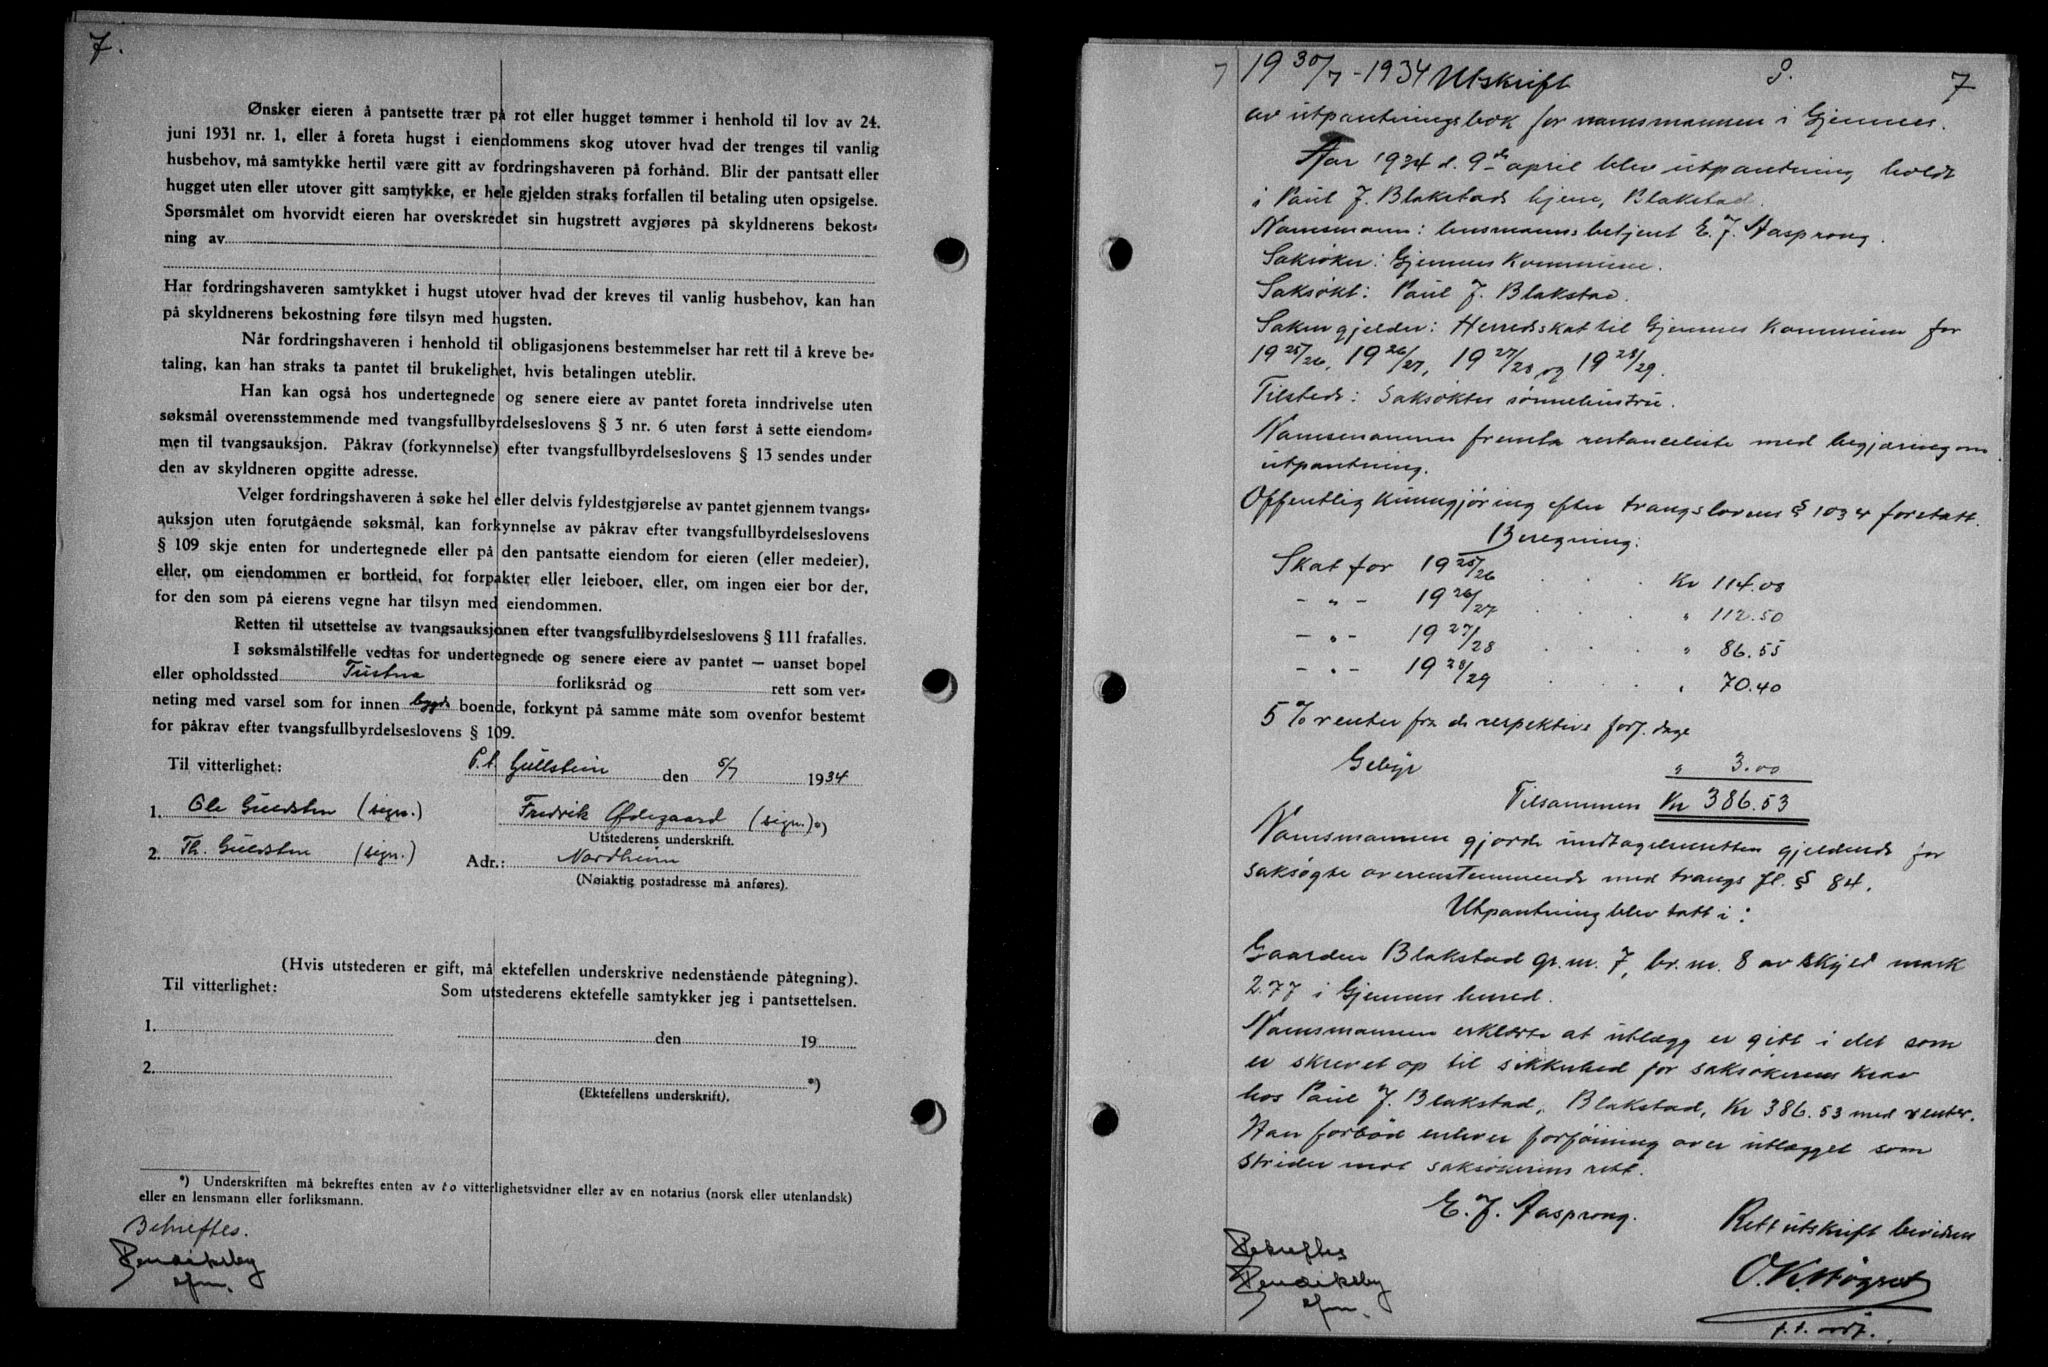 7.
Ønsker eieren å pantsette trær på rot eller hugget tømmer i henhold til lov av 24.
juni 1931 nr. 1, eller å foreta hugst i eiendommens skog utover hvad der trenges til vanlig
husbehov, må samtykke hertil være gitt av fordringshaveren på forhånd. Blir der pantsatt eller
hugget uten eller utover gitt samtykke, er hele gjelden straks forfallen til betaling uten opsigelse.
Spørsmålet om hvorvidt eieren har overskredet sin hugstrett avgjøres på skyldnerens bekost-
ning av
Har fordringshaveren samtykket i hugst utover hvad der kreves til vanlig husbehov, kan han
på skyldnerens bekostning føre tilsyn med hugsten.
Når fordringshaveren i henhold til obligasjonens bestemmelser har rett til å kreve be-
taling, kan han straks ta pantet til brukelighet, hvis betalingen uteblir.
Han kan også hos undertegnede og senere eiere av pantet foreta inndrivelse uten
søksmål overensstemmende med tvangsfullbyrdelseslovens § 3 nr. 6 uten først å sette eiendom-
men til tvangsauksjon. Påkrav (forkynnelse) efter tvangsfullbyrdelseslovens § 13 sendes under
den av skyldneren opgitte adresse.
Velger fordringshaveren å søke hel eller delvis fyldestgjørelse av pantet gjennem tvangs-
auksjon uten forutgående søksmål, kan forkynnelse av påkrav efter tvangsfullbyrdelseslovens
§ 109 skje enten for undertegnede eller på den pantsatte eiendom for eieren (eller medeier),
eller, om eiendommen er bortleid, for forpakter eller leieboer, eller, om ingen eier bor der,
for den som på eierens vegne har tilsyn med eiendommen.
Retten til utsettelse av tvangsauksjonen efter tvangsfullbyrdelseslovens § 111 frafalles.
I søksmålstilfelle vedtas for undertegnede og senere eiere av pantet — uanset bopel
eller opholdssted Tustna forliksråd og rett som ver-
neting med varsel som for innen bygds boende, forkynt på samme måte som ovenfor bestemt
for påkrav efter tvangsfullbyrdelseslovens § 109.
Til vitterlighet: P.t. Gullstein den 5/7 1934
1. Ole Guldsten (sign.) Fredrik Ødegaard (sign.) *)
Utstederens underskrift.
2. Th. Guldsten (sign.) Adr.: Nordheim
(Nøiaktig postadresse må anføres).
(Hvis utstederen er gift, må ektefellen underskrive nedenstående påtegning).
Til vitterlighet: Som utstederens ektefelle samtykker jeg i pantsettelsen.
1. den 19
2. *)
(Ektefellens underskrift).
*) Underskriften må bekreftes enten av to vitterlighetsvidner eller av en notarius (norsk eller utenlandsk)
eller en lensmann eller forliksmann.
Bekreftes.
7 19 30/7 - 1934 Utskrift 7
av utpantningsbok for namsmannen i Gjemnes.
Aar 1934 d. 9de april blev utpantning holdt
i Paul J. Blakstads hjem, Blakstad.
Namsmann: lensmannsbetjent E. J. Aasprong.
Saksøker: Gjemnes Kommune.
Saksøkt: Paul J. Blakstad.
Saken gjelder: Herredsskat til Gjemnes Kommune for
1925/26, 1926/27, 1927/28 og 1928/29.
Tilstede: Saksøktes sønnehustru.
Namsmannen fremla restanceliste med begjæring om
utpantning.
Offentlig kunngjøring efter tvangslovens § 1034 foretatt.
Beregning:
Skat for 1925/26 . . . Kr 114.08
- " - 1926/27 . . " 112.50
- " - 1927/28 . . " 86.55
- " - 1928/29 . . " 70.40
5 % renter fra de respektive forf. dage
Gebyr " 3.00
Tilsammen Kr 386.53
Namsmannen gjorde undtagelsesretten gjeldende for
saksøgte overensstemmende med tvangs fl. § 84.
Utpantning blev tatt i:
Gaarden Blakstad gr.nr. 7, br.nr. 8 av skyld mark
2.77 i Gjemnes herred.
Namsmannen erklærte at utlægg er gitt i det som
er skrevet op til sikkerhed for saksøkerens krav
hos Paul J. Blakstad, Blakstad, Kr 386.53 med renter.
Han forbød enhver forføining over utlægget som
strider mot saksøkerens rett.
E. J. Aasprong.
Rett utskrift bevidnes
Bekreftes